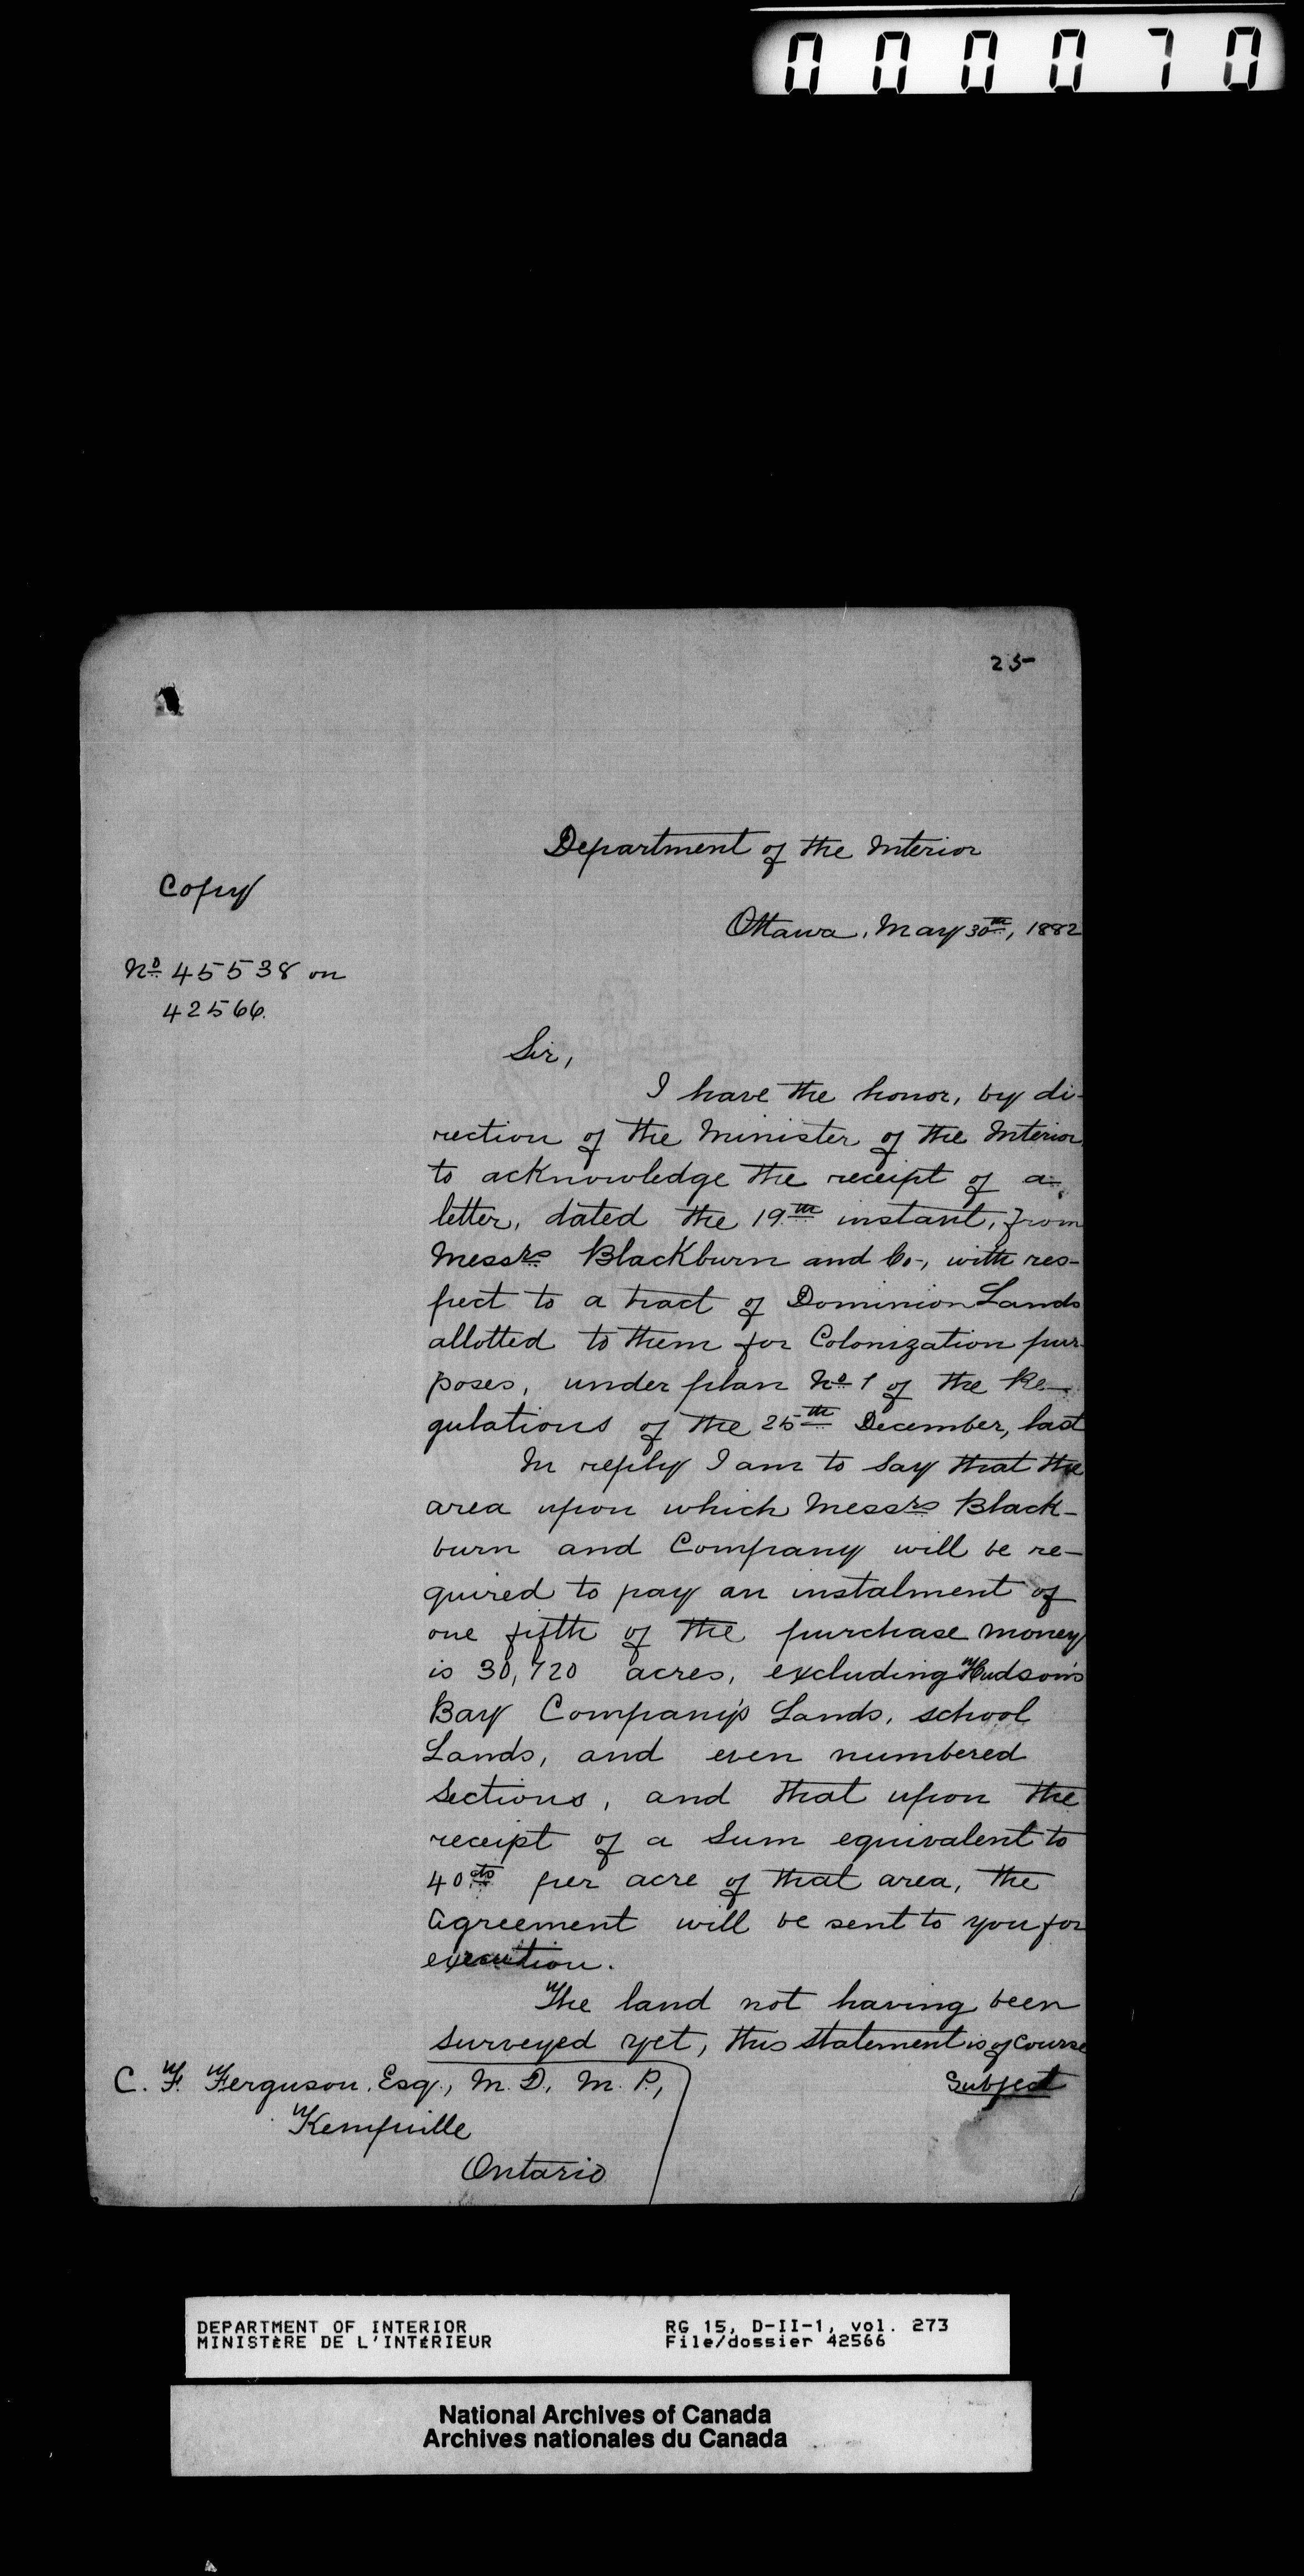 000070
25
Department of the Interior
Copy
Ottawa, May 30th, 1882
No 45538 on
42566.
Sir,
I have the honor, by di-
rection of the Minister of the Interior
to acknowledge the receipt of a
letter, dated the 19th instant, from
Messrs Blackburn and Co-, with res-
pect to a tract of Dominion Lands
allotted to them for Colonization pur-
poses, under plan No 1 of the Re-
gulations of the 25th December, last
In reply I am to say that the
area upon which Messrs Black-
burn and Company will be re-
quired to pay an instalment of
one fifth of the purchase money
is 30,720 acres, excluding Hudson's
Bay Company's Lands, school
Lands, and even numbered
Sections, and that upon the
receipt of a sum equivalent to
40cts per acre of that area, the
Agreement will be sent to you for
execution.
The land not having been
surveyed yet, this statement is of course
Subject
C. F. Ferguson, Esq., M.D., M.P.,
Kemptville
Ontario
DEPARTMENT OF INTERIOR
MINISTÈRE DE L'INTÉRIEUR
RG 15, D-II-1, vol. 273
File/dossier 42566
National Archives of Canada
Archives nationales du Canada